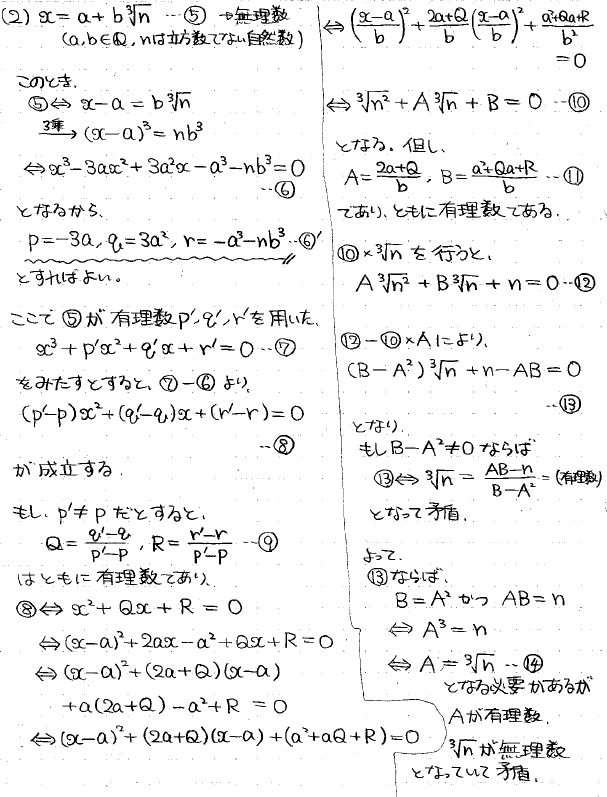 (2) x = a + b∛n …⑤ → 無理数
(a, b ∈ Q, nは立方数でない自然数)
このとき.
⑤⇔ x-a = b∛n
3乗→ (x-a)³ = nb³
⇔ x³-3ax²+3a²x-a³-nb³=0
…⑥
となるから、
p=-3a, q=3a², r=-a³-nb³ …⑥'
とすればよい。
ここで⑤が有理数p', q', r'を用いた、
x³+p'x²+q'x+r'=0 …⑦
をみたすとすると、⑦-⑥より、
(p'-p)x²+(q'-q)x+(r'-r)=0
…⑧
が成立する.
もし、p'≠pだとすると、
Q=(q'-q)/(p'-p), R=(r'-r)/(p'-p) …⑨
はともに有理数であり、
⑧⇔ x²+Qx+R=0
⇔(x-a)²+2ax-a²+Qx+R=0
⇔(x-a)²+(2a+Q)(x-a)
+a(2a+Q)-a²+R=0
⇔(x-a)²+(2a+Q)(x-a)+(a²+aQ+R)=0
⇔((x-a)/b)²+(2a+Q)/b((x-a)/b)²+(a²+Qa+R)/b²
=0
⇔∛n²+A∛n+B=0 …⑩
となる. 但し、
A=(2a+Q)/b, B=(a²+Qa+R)/b …⑪
であり、ともに有理数である.
⑩×∛nを行うと、
A∛n²+B∛n+n=0 …⑫
⑫-⑩×Aにより、
(B-A²)∛n+n-AB=0
…⑬
となり、
もしB-A²≠0ならば
⑬⇔∛n=(AB-n)/(B-A²)=(有理数)
となって矛盾.
よって、
⑬ならば、
B=A² かつ AB=n
⇔A³=n
⇔A=∛n …⑭
となる必要があるが
Aが有理数.
∛nが無理数
となっていて矛盾.